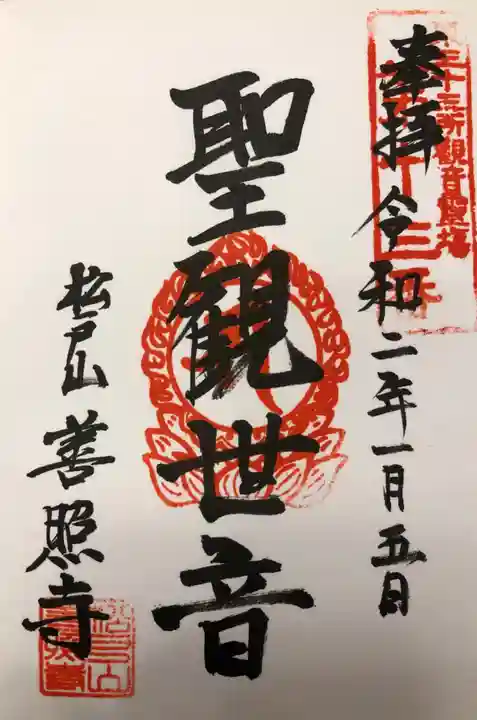 奉拝 令和二年一月五日
三十三所観音霊場
聖観世音
松戸山 善照寺